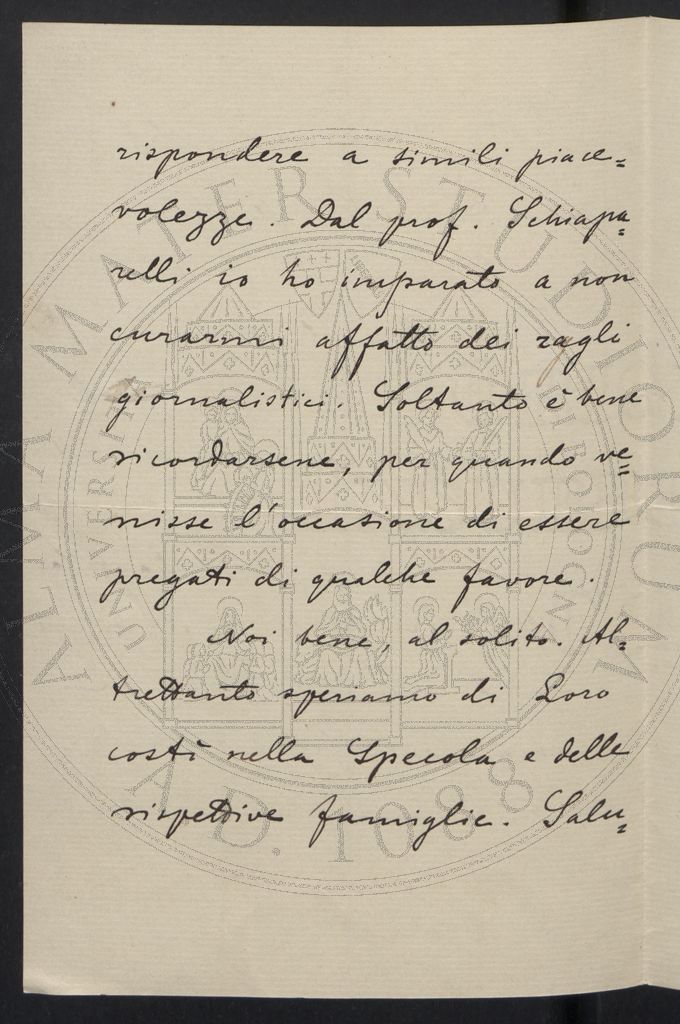 rispondere a simili piace=
volezze. Dal prof. Schiapa=
relli io ho imparato a non
curarmi affatto dei ragli
giornalistici. Soltanto è bene
ricordarsene, per quando ve=
nisse l'occasione di essere
pregati di qualche favore.
Noi bene, al solito. Al=
trettanto speriamo di Loro
costì nella Specola e delle
rispettive famiglie. Salu=
ALMA MATER STUDIORUM
A.D. 1088